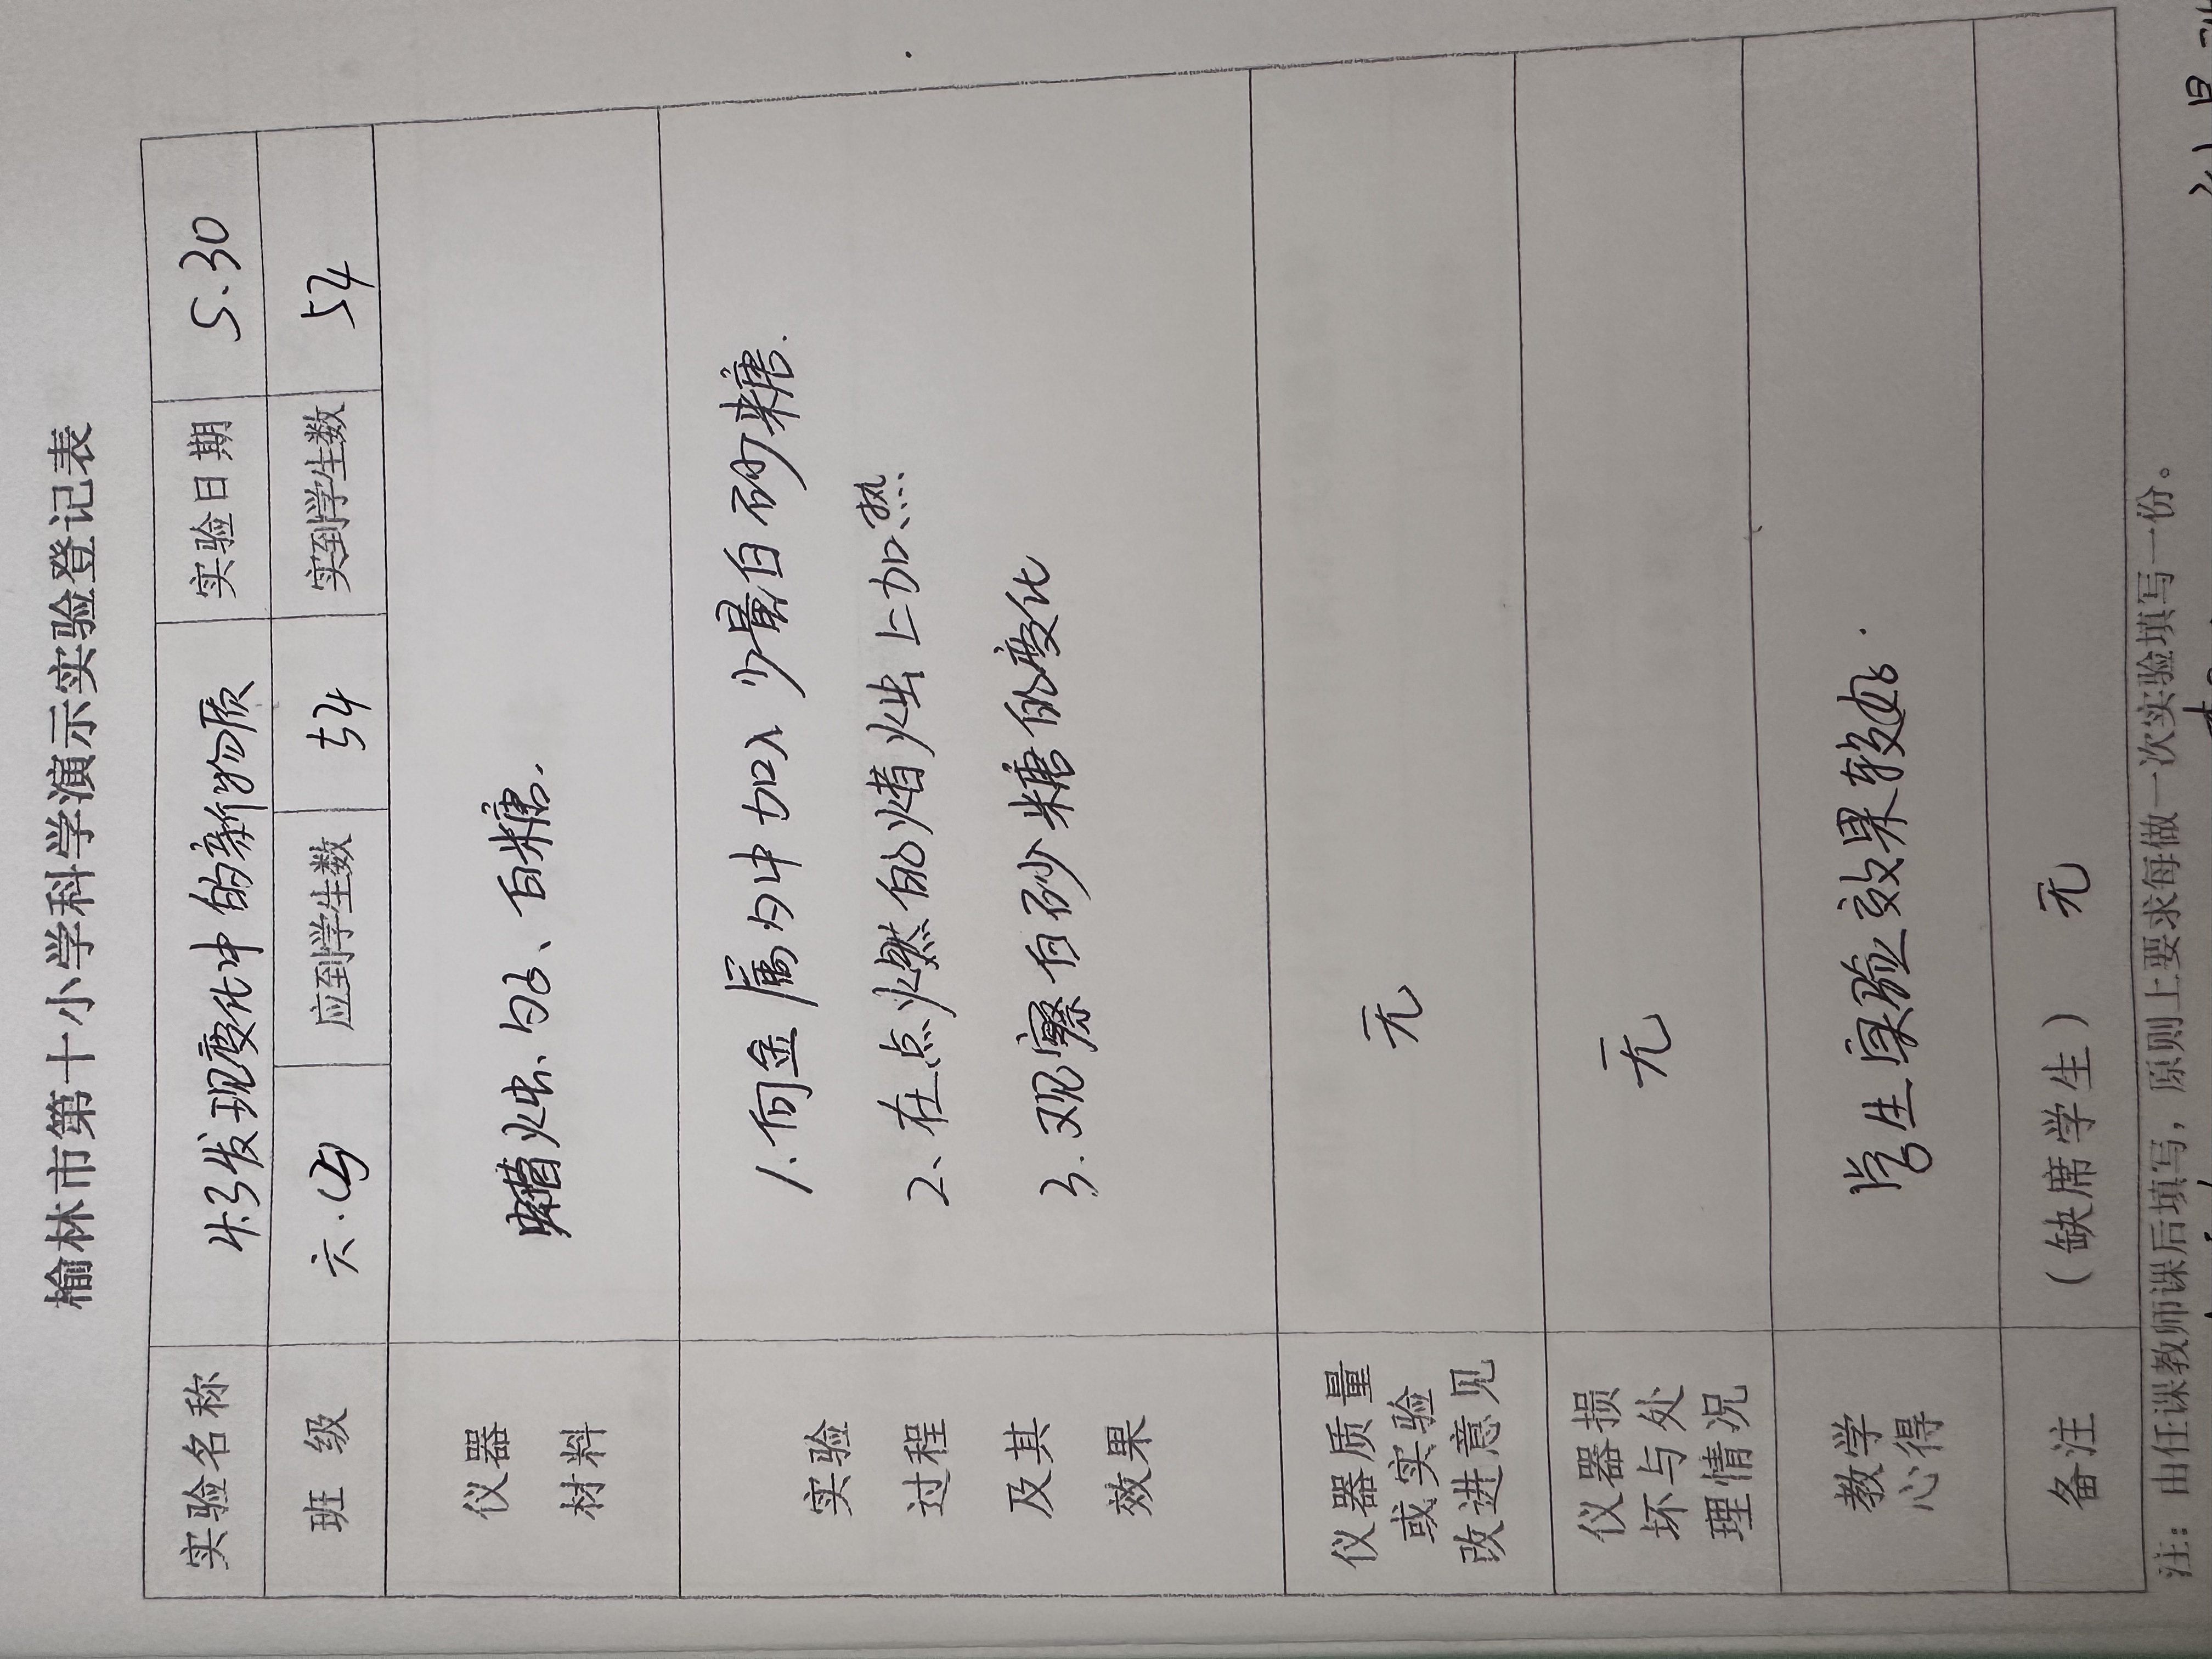 榆林市第十小学科学演示实验登记表
实验名称 4.3发现变化中的新物质 实验日期 5.30
班 级 六.(4) 应到学生数 54 实到学生数 54
仪器
材料
蜡烛、勺子、白糖.
实验
过程
及其
效果
1、向金属勺中加入少量白砂糖.
2、在点燃的蜡烛上加热
3.观察白砂糖的变化
仪器质量
或实验
改进意见
无
仪器损
坏与处
理情况
无
教学
心得
学生实验效果较好.
备注 (缺席学生) 无
注：由任课教师课后填写，原则上要求每做一次实验填写一份。